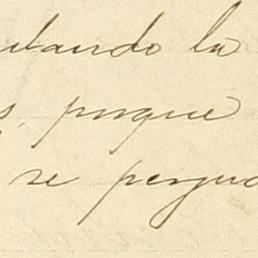 ulando la
s, porque
se perju